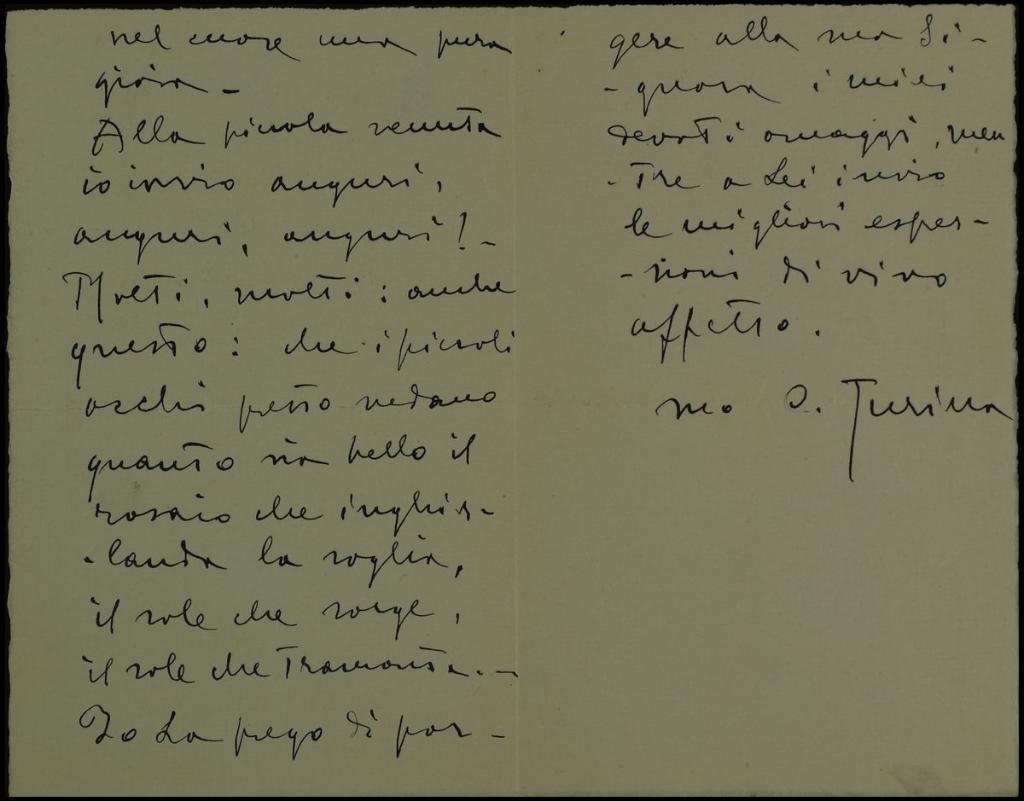 nel cuore una pura
gioia –
Alla piccola venuta
io invio auguri,
auguri, auguri! –
Molti, molti: anche
questo: che i piccoli
occhi presto vedano
quanto sia bello il
rosaio che inghir-
-landa la soglia,
il sole che sorge,
il sole che tramonta. –
Io La prego di por-
gere alla sua Si-
-gnora i miei
devoti omaggi, men
-tre a Lei invio
le migliori espres-
-sioni di vivo
affetto.
suo O. Turina